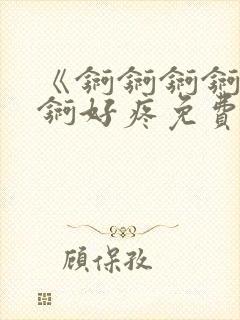 《锕锕锕锕
锕好疼免費
顾保孜